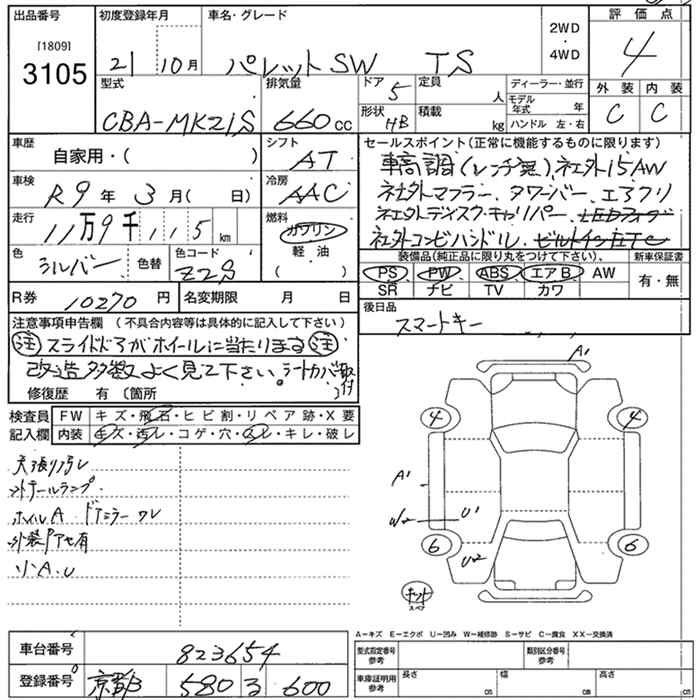 出品番号 初度登録年月 車名・グレード 評価点
[1809]
3105
21 10月 パレットSW TS
2WD
・
4WD
4
型式 排気量 ドア 5 定員 人 ディーラー・並行 外装 内装
CBA-MK21S 660cc 形状 HB 積載 kg モデル年式 年 C C
ハンドル 左・右
車歴 シフト セールスポイント(正常に機能するものに限ります)
自家用・( ) AT 車高調(レンチ無)、社外15AW
車検 冷房 社外マフラー、タワーバー、エアクリ
R9年 3月( 日) AAC 社外ディスク・キャリパー、
走行 燃料 社外コンビハンドル、ビルトインETC
11万9千115km ガソリン
軽油
( )
色 色替 色コード 装備品(純正品に限り丸をつけて下さい)。 新車保証書
シルバー Z2S PS PW ABS エアB AW 有・無
SR ナビ TV カワ
R券 10270円 名変期限 月 日 後日品
スマートキー
注意事項申告欄 (不具合内容等は具体的に記入して下さい)
注 スライドドアがホイールに当たります 注
改造多数、よく見て下さい。シートカバー取付
修復歴 有 〔箇所
検査員 FW キズ・飛石・ヒビ割・リペア跡・X要
記入欄 内装 キズ・汚レ・コゲ・穴・スレ・キレ・破レ
天張り汚レ
外テールランプ
ホイルA ドアミラーワレ
外装PTセ有
小A.U
A1
4 4
A1
W2 U1
6 6
U2
キット
スペア
A−キズ E−エクボ U−凹み W−補修跡 S−サビ C−腐食 XX−交換済
車台番号 823654
型式指定番号 参考 類別区分番号 参考
登録番号 京都 580 る 600
車庫証明用 参考 長さ cm 幅 cm 高さ cm